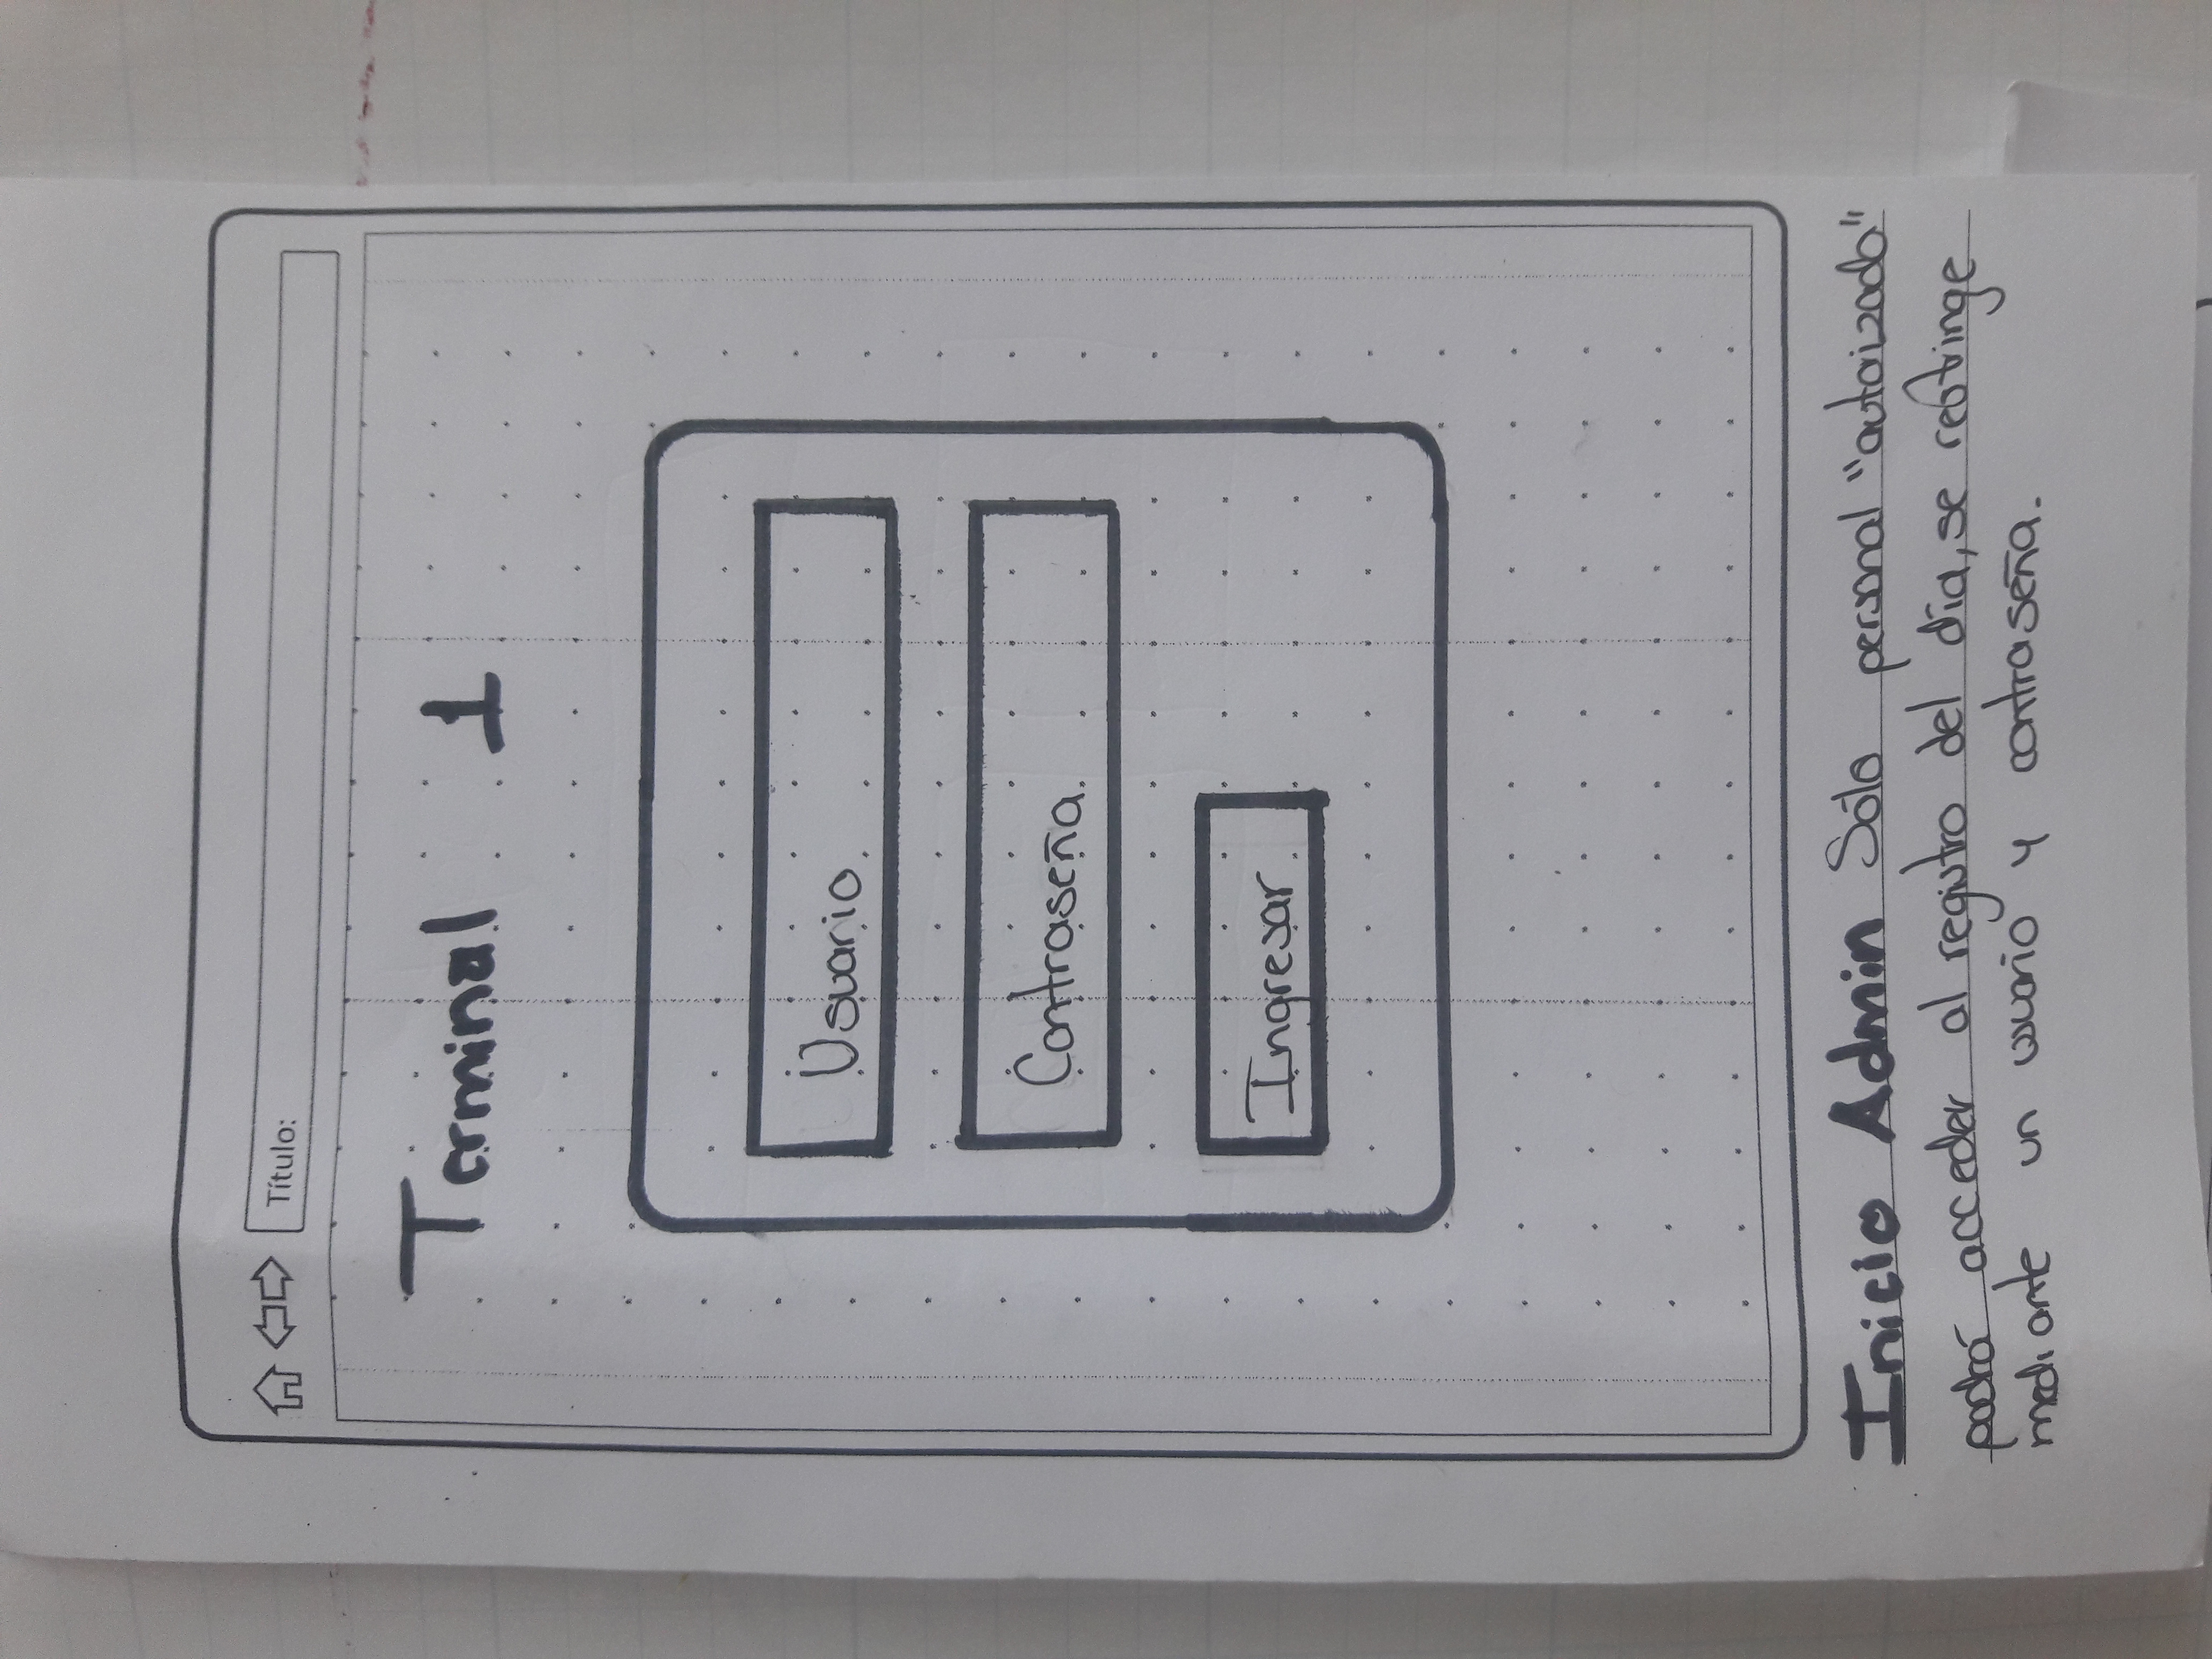 Título:
Terminal 1
Usuario
Contraseña
Ingresar
Inicio Admin Sólo personal "autorizado"
podrá acceder al registro del día, se restringe
mediante un usuario y contraseña.